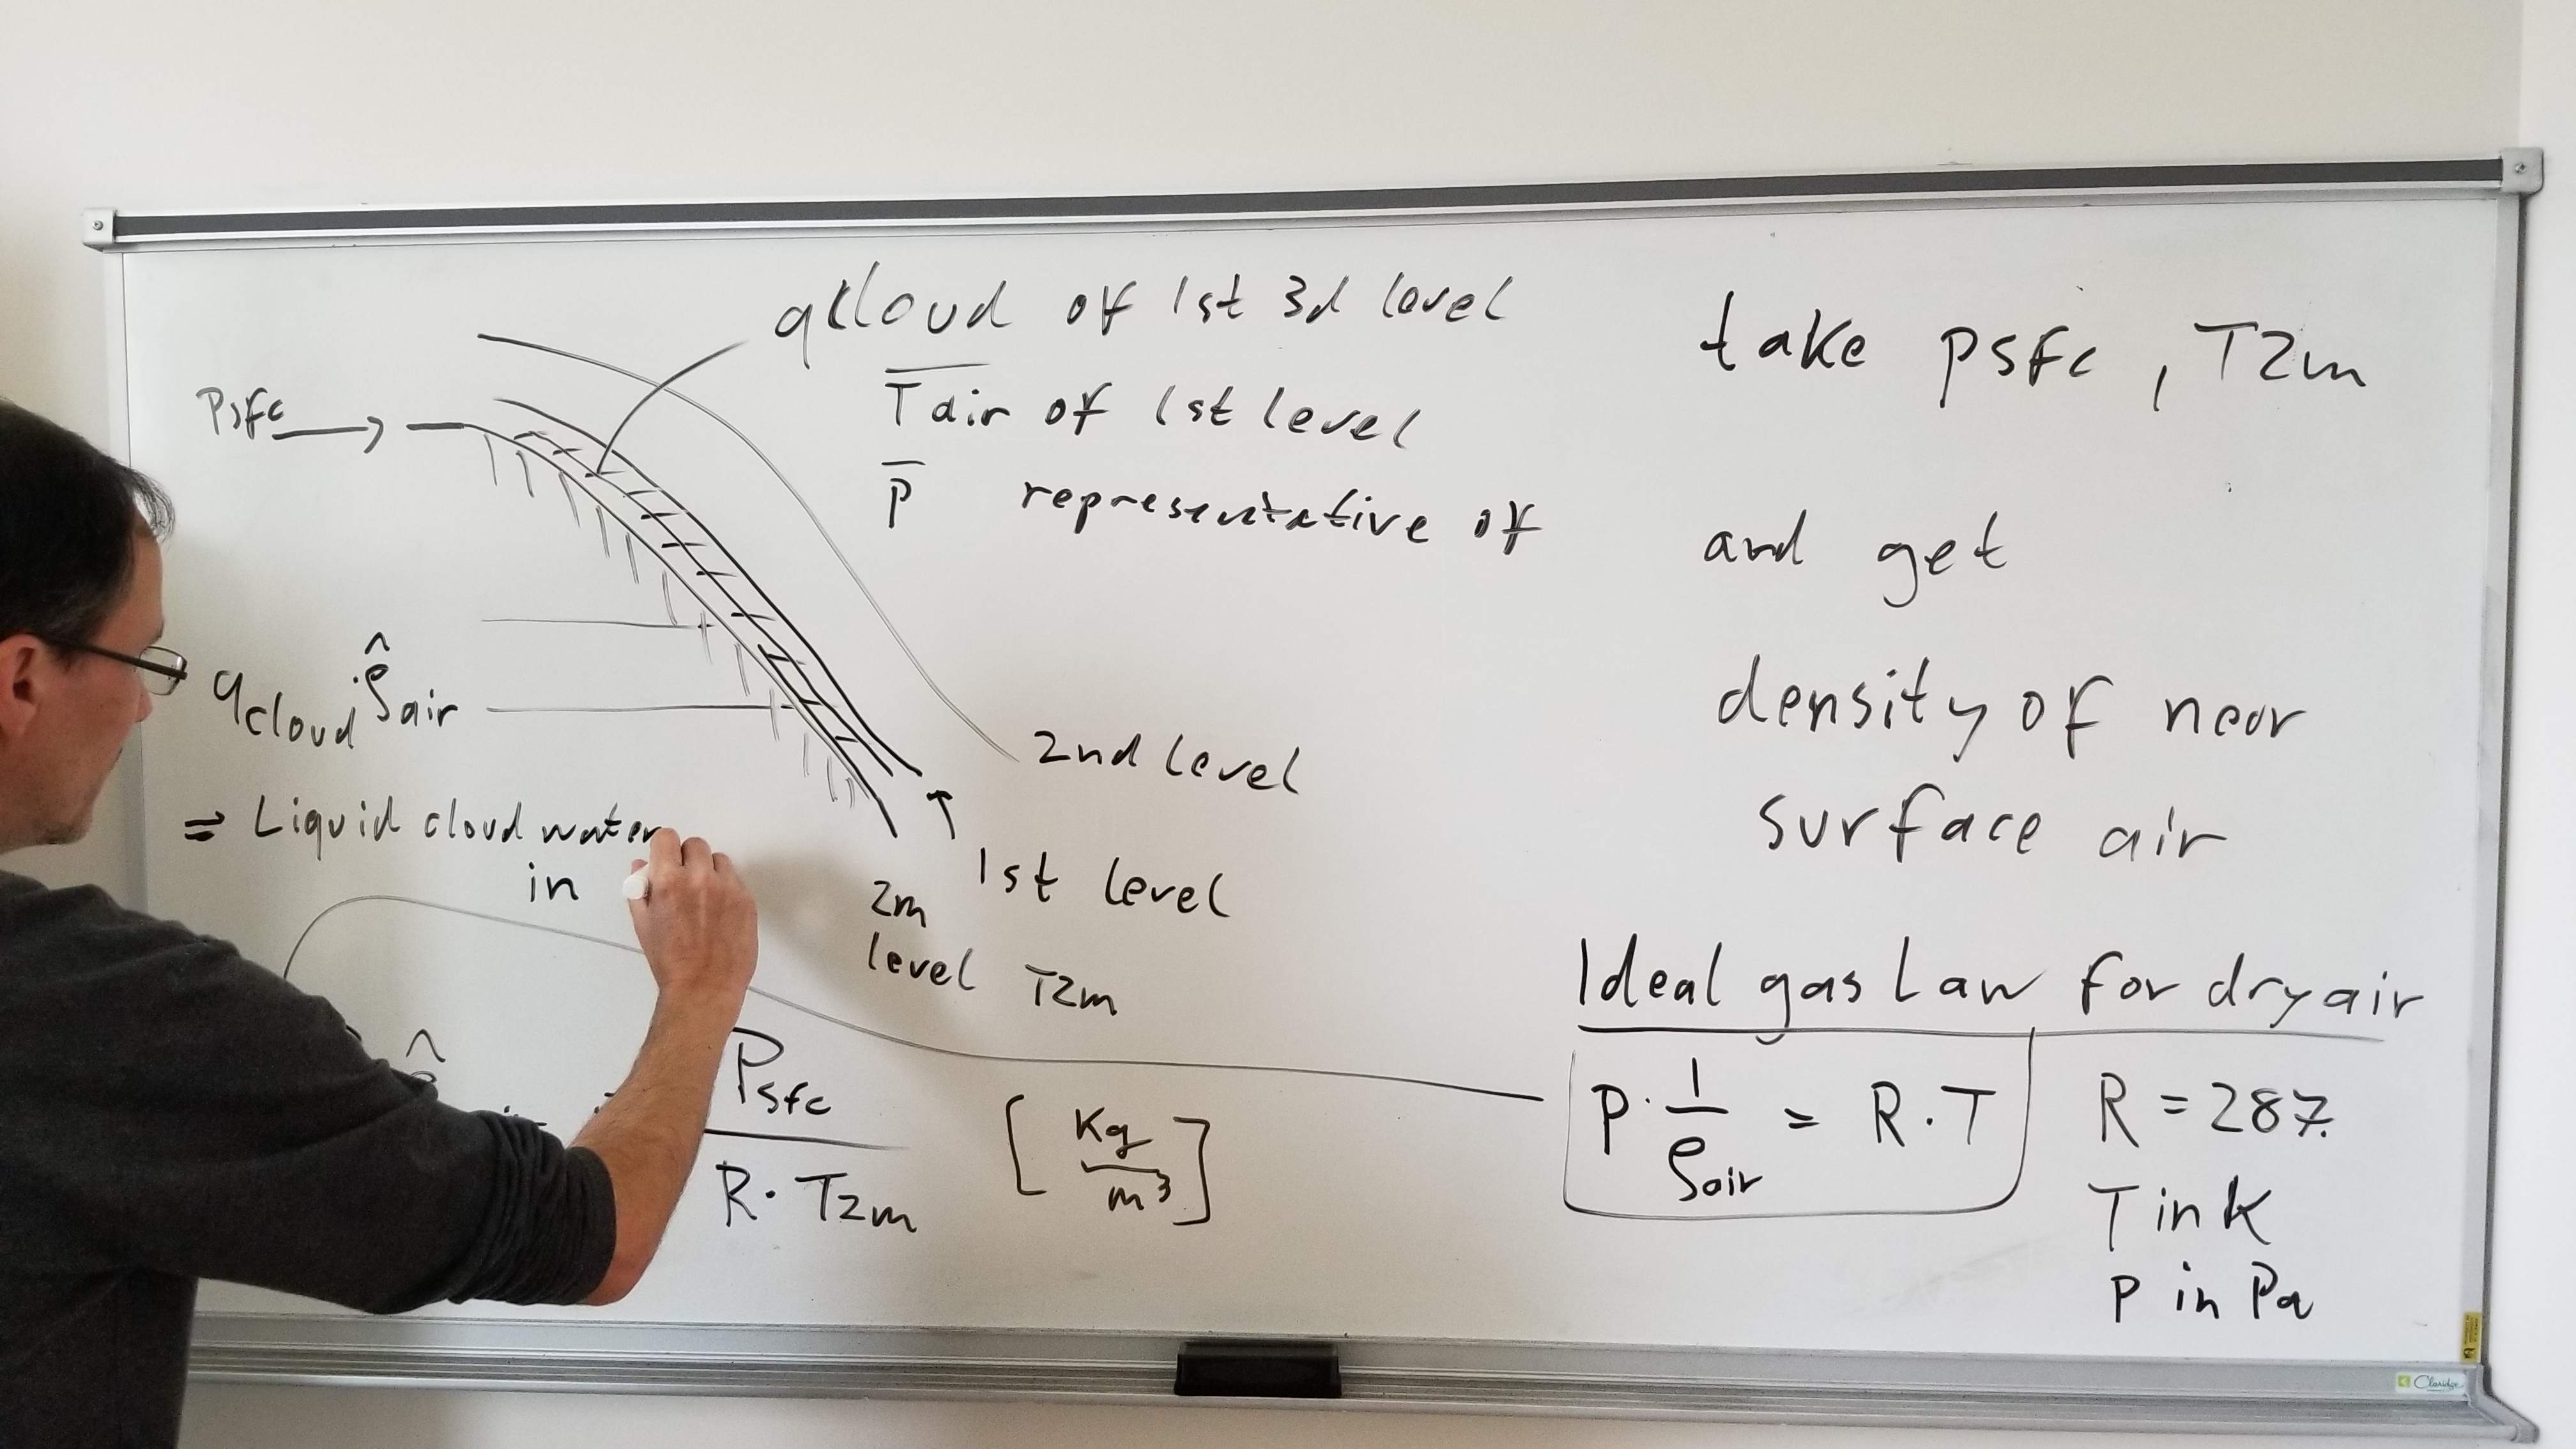 qcloud of 1st 3d level
T̅air of 1st level
p̅ representative of
Psfc
qcloud · ρ̂air
⇒ Liquid cloud water
in
2nd level
1st level
2m
level T2m
Psfc
R · T2m
[Kg/m³]
take psfc, T2m
and get
density of near
surface air
Ideal gas Law for dry air
P · 1/ρair = R · T
R = 287.
T in K
P in Pa
Claridge